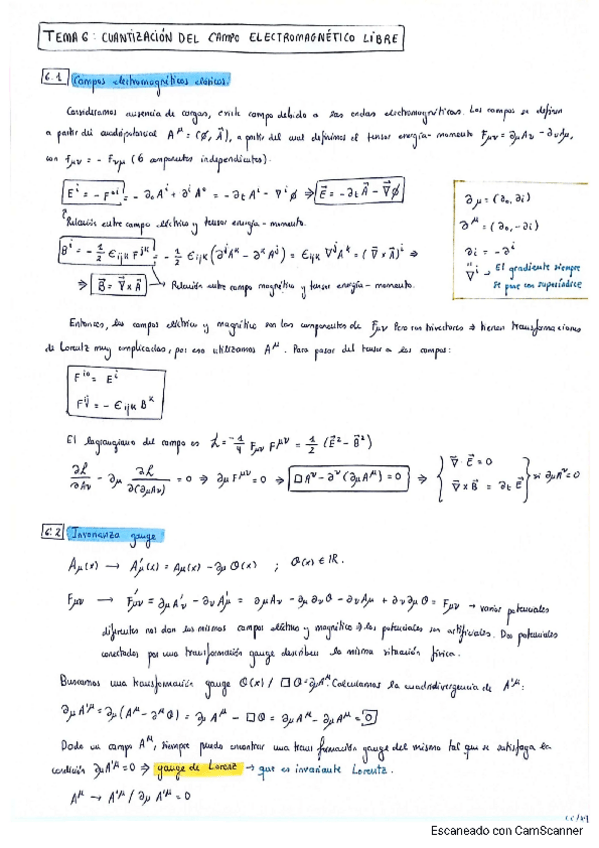 TEMA 6: CUANTIZACIÓN DEL CAMPO ELECTROMAGNÉTICO LIBRE
6.1 Campos electromagnéticos clásicos.
Consideramos ausencia de cargas, existe campo debido a las ondas electromagnéticas. Los campos se definen
a partir del cuadripotencial A^μ = (∅, A⃗), a partir del cual definimos el tensor energía-momento F_μν = ∂_μ A_ν - ∂_ν A_μ,
con f_μν = - F_νμ (6 componentes independientes).
E^i = - F^{0i} = - ∂_0 A^i + ∂^i A^0 = - ∂_t A^i - ∇^i ∅ ⇒ E⃗ = -∂_t A⃗ - ∇⃗∅
Relación entre campo eléctrico y tensor energía-momento.
B^i = - 1/2 ϵ_{ijk} F^{jk} = - 1/2 ϵ_{ijk} (∂^j A^k - ∂^k A^j) = ϵ_{ijk} ∇^j A^k = (∇⃗ x A⃗)^i ⇒
⇒ B⃗ = ∇⃗ x A⃗ → Relación entre campo magnético y tensor energía-momento.
∂_μ = (∂_0, ∂_i)
∂^μ = (∂_0, -∂_i)
∂_i = -∂^i
∇^i → El gradiente siempre
se pone con superíndice
Entonces, los campos eléctrico y magnético son las componentes de F_μν pero son trivectores ⇒ tienen transformaciones
de Lorentz muy complicadas, por eso utilizamos A^μ. Para pasar del tensor a los campos:
F^{i0} = E^i
F^{ij} = - ϵ_{ijk} B^k
El lagrangiano del campo es ℒ = -1/4 F_μν F^μν = 1/2 (E⃗² - B⃗²)
∂ℒ/∂A_ν - ∂_μ ∂ℒ/∂(∂_μ A_ν) = 0 ⇒ ∂_μ F^μν = 0 ⇒ □A^ν - ∂^ν (∂_μ A^μ) = 0 ⇒ { ∇⃗ · E⃗ = 0
∇⃗ x B⃗ = ∂_t E⃗ } si ∂_μ A^μ = 0
6.2 Invarianza gauge
A_μ(x) → A'_μ(x) = A_μ(x) - ∂_μ θ(x) ; θ(x) ∈ ℝ.
F_μν → F'_μν = ∂_μ A'_ν - ∂_ν A'_μ = ∂_μ A_ν - ∂_μ ∂_ν θ - ∂_ν A_μ + ∂_ν ∂_μ θ = F_μν → varios potenciales
diferentes nos dan los mismos campos eléctrico y magnético ⇒ los potenciales son artificiales. Dos potenciales
conectados por una transformación gauge describen la misma situación física.
Buscamos una transformación gauge θ(x) / □θ = ∂_μ A^μ. Calculamos la cuadridivergencia de A'^μ:
∂_μ A'^μ = ∂_μ (A^μ - ∂^μ θ) = ∂_μ A^μ - □θ = ∂_μ A^μ - ∂_μ A^μ = 0
Dado un campo A^μ, siempre puedo encontrar una transformación gauge del mismo tal que se satisfaga la
condición ∂_μ A'^μ = 0 ⇒ gauge de Lorenz → que es invariante Lorentz.
A^μ → A'^μ / ∂_μ A'^μ = 0
Escaneado con CamScanner